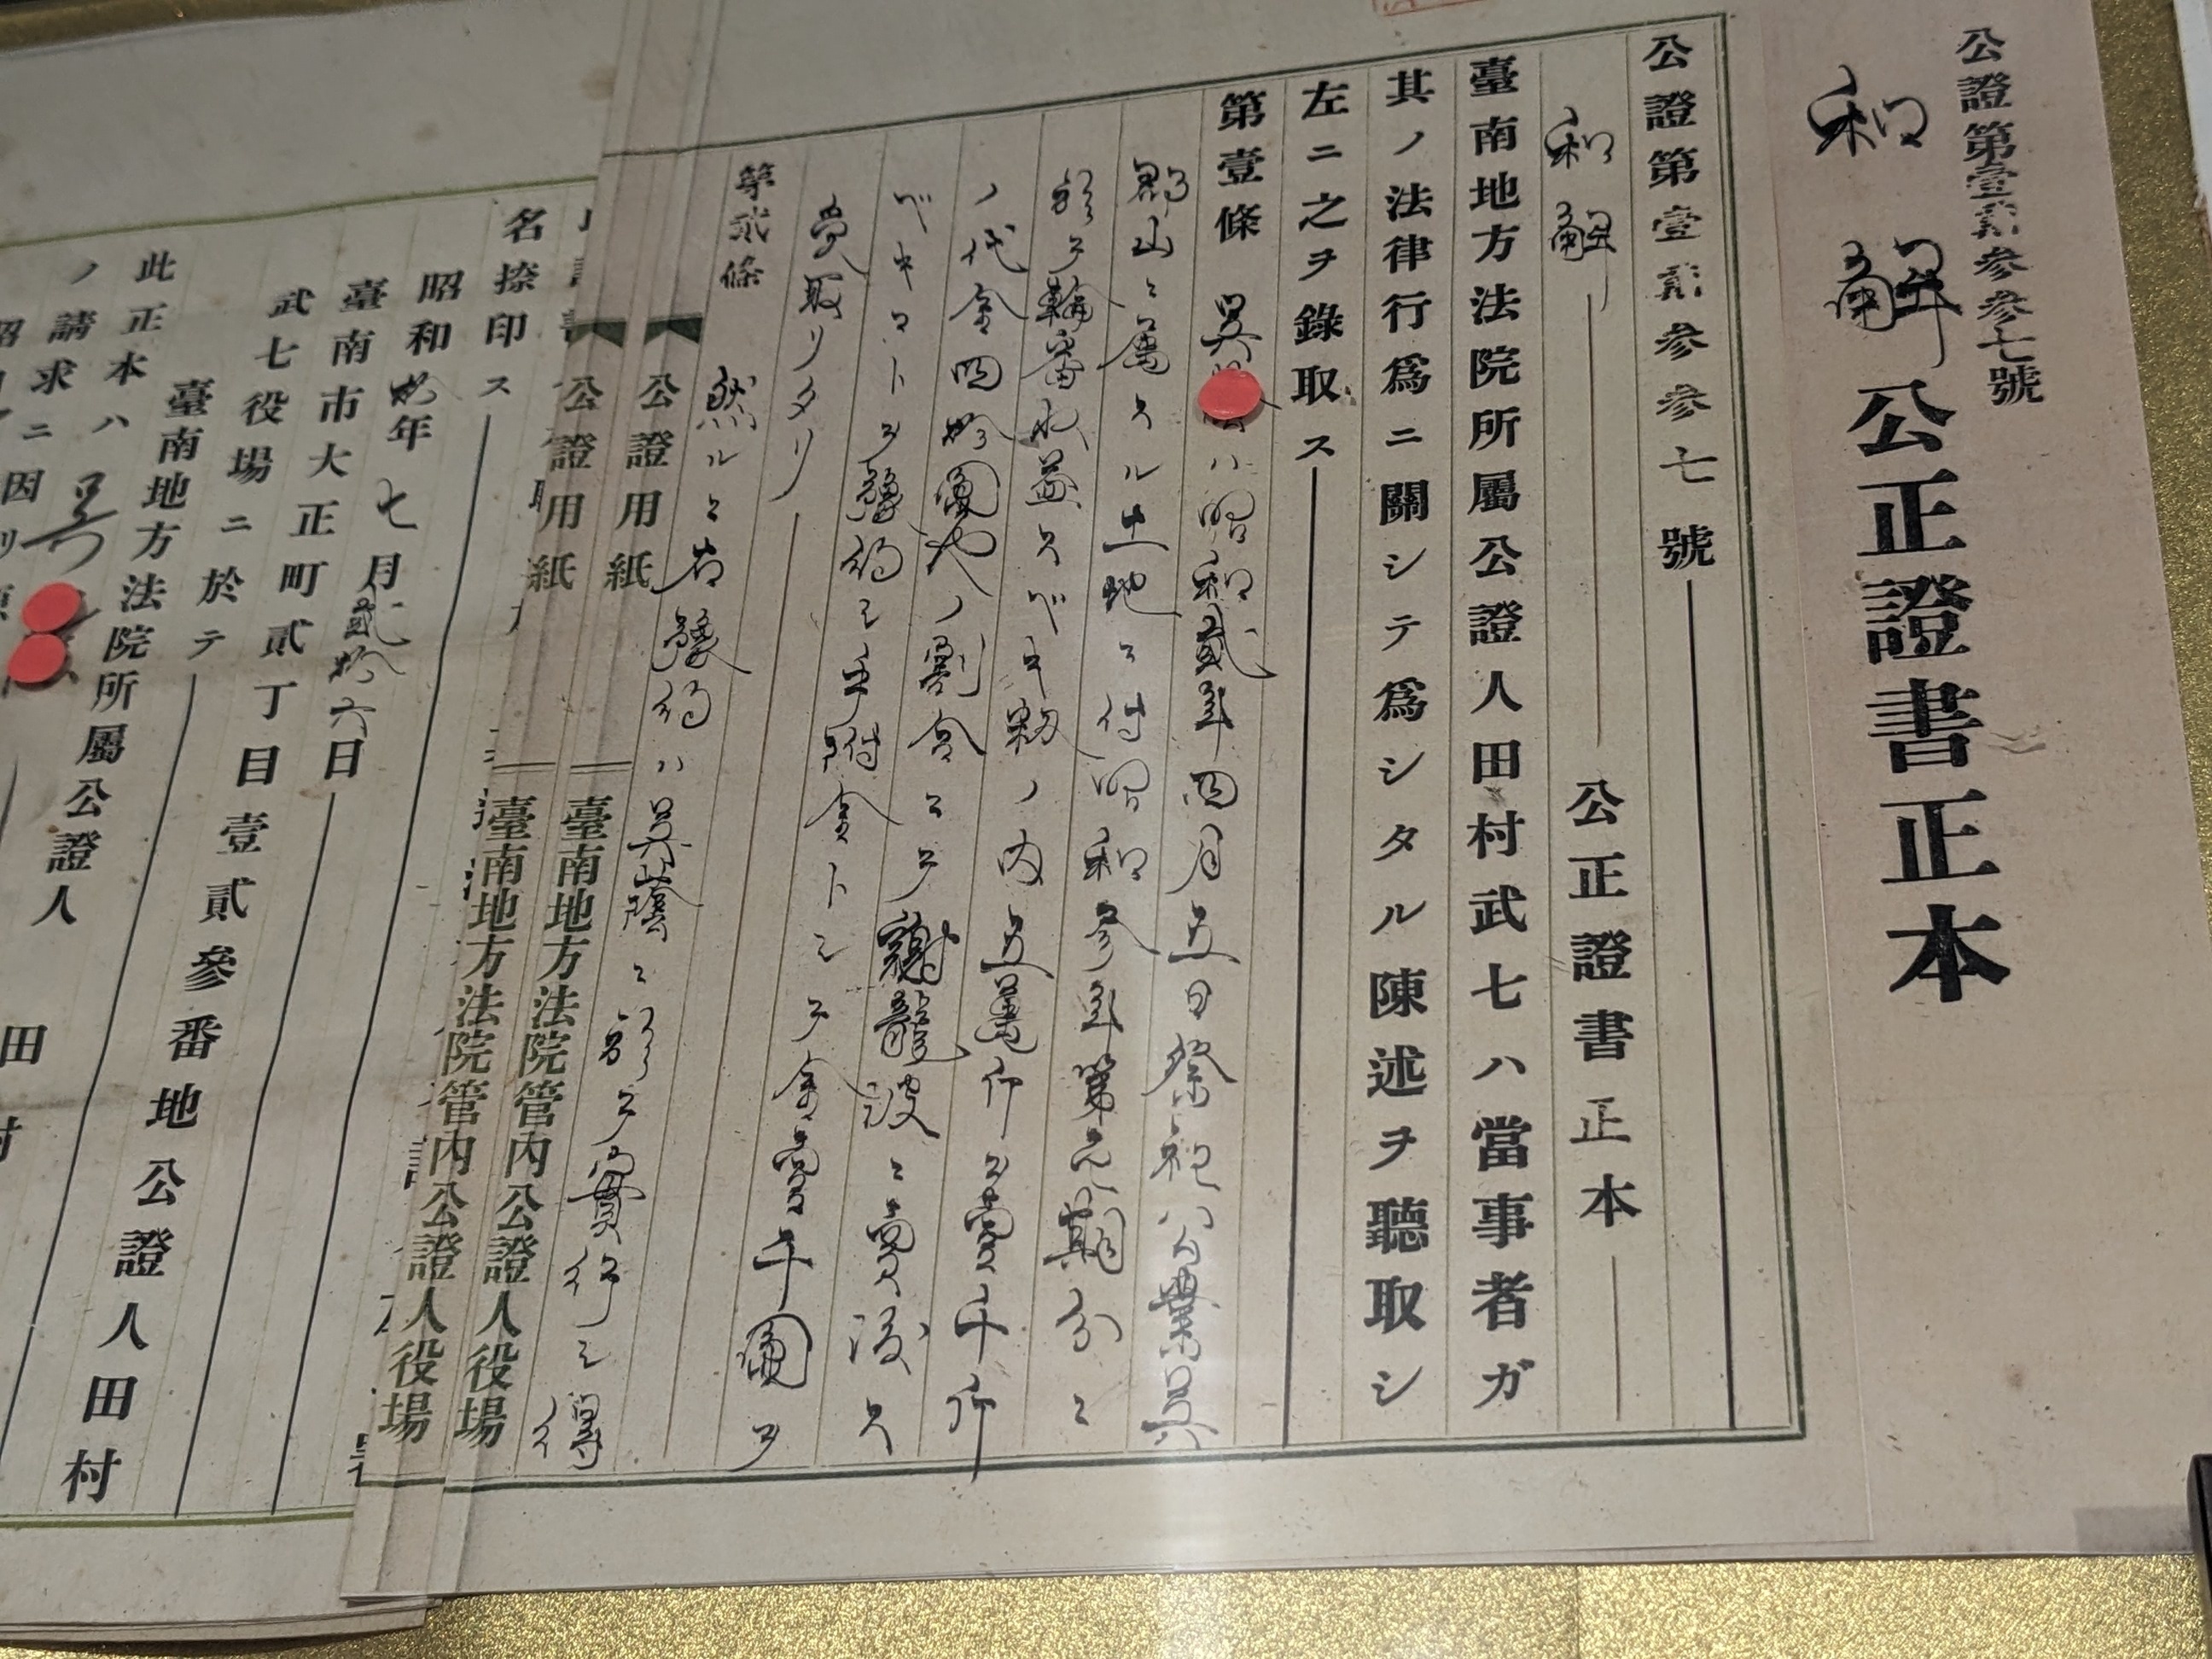 公證第壹貳參參七號
和解公正證書正本
公證第壹貳參參七號
和解 公正證書正本
臺南地方法院所屬公證人田村武七ハ當事者ガ
其ノ法律行爲ニ關シテ爲シタル陳述ヲ聽取シ
左ニ之ヲ錄取ス
第壹條 吳 ハ昭和貳年四月五日祭祀公業吳
郡山ニ屬スル土地ニ付昭和參年第元期分ニ
於テ輪番收益スベキ籾ノ內五萬斤ヲ壹千斤
ノ代金四拾圓也ノ割合ニテ謝龍波ニ賣渡ス
ベキコトヲ豫約シ手附金トシテ金壹千圓ヲ
受取リタリ
第貳條 然ルニ右豫約ハ吳蔭ニ於テ實行シ得
公證用紙 臺南地方法院管內公證人役場
公證用紙 臺南地方法院管內公證人役場
名捺印ス
昭和 年七月貳拾六日
臺南市大正町貳丁目壹貳參番地公證人田村
武七役場ニ於テ
臺南地方法院所屬公證人
此正本ハ 吳
ノ請求ニ因リ
田村